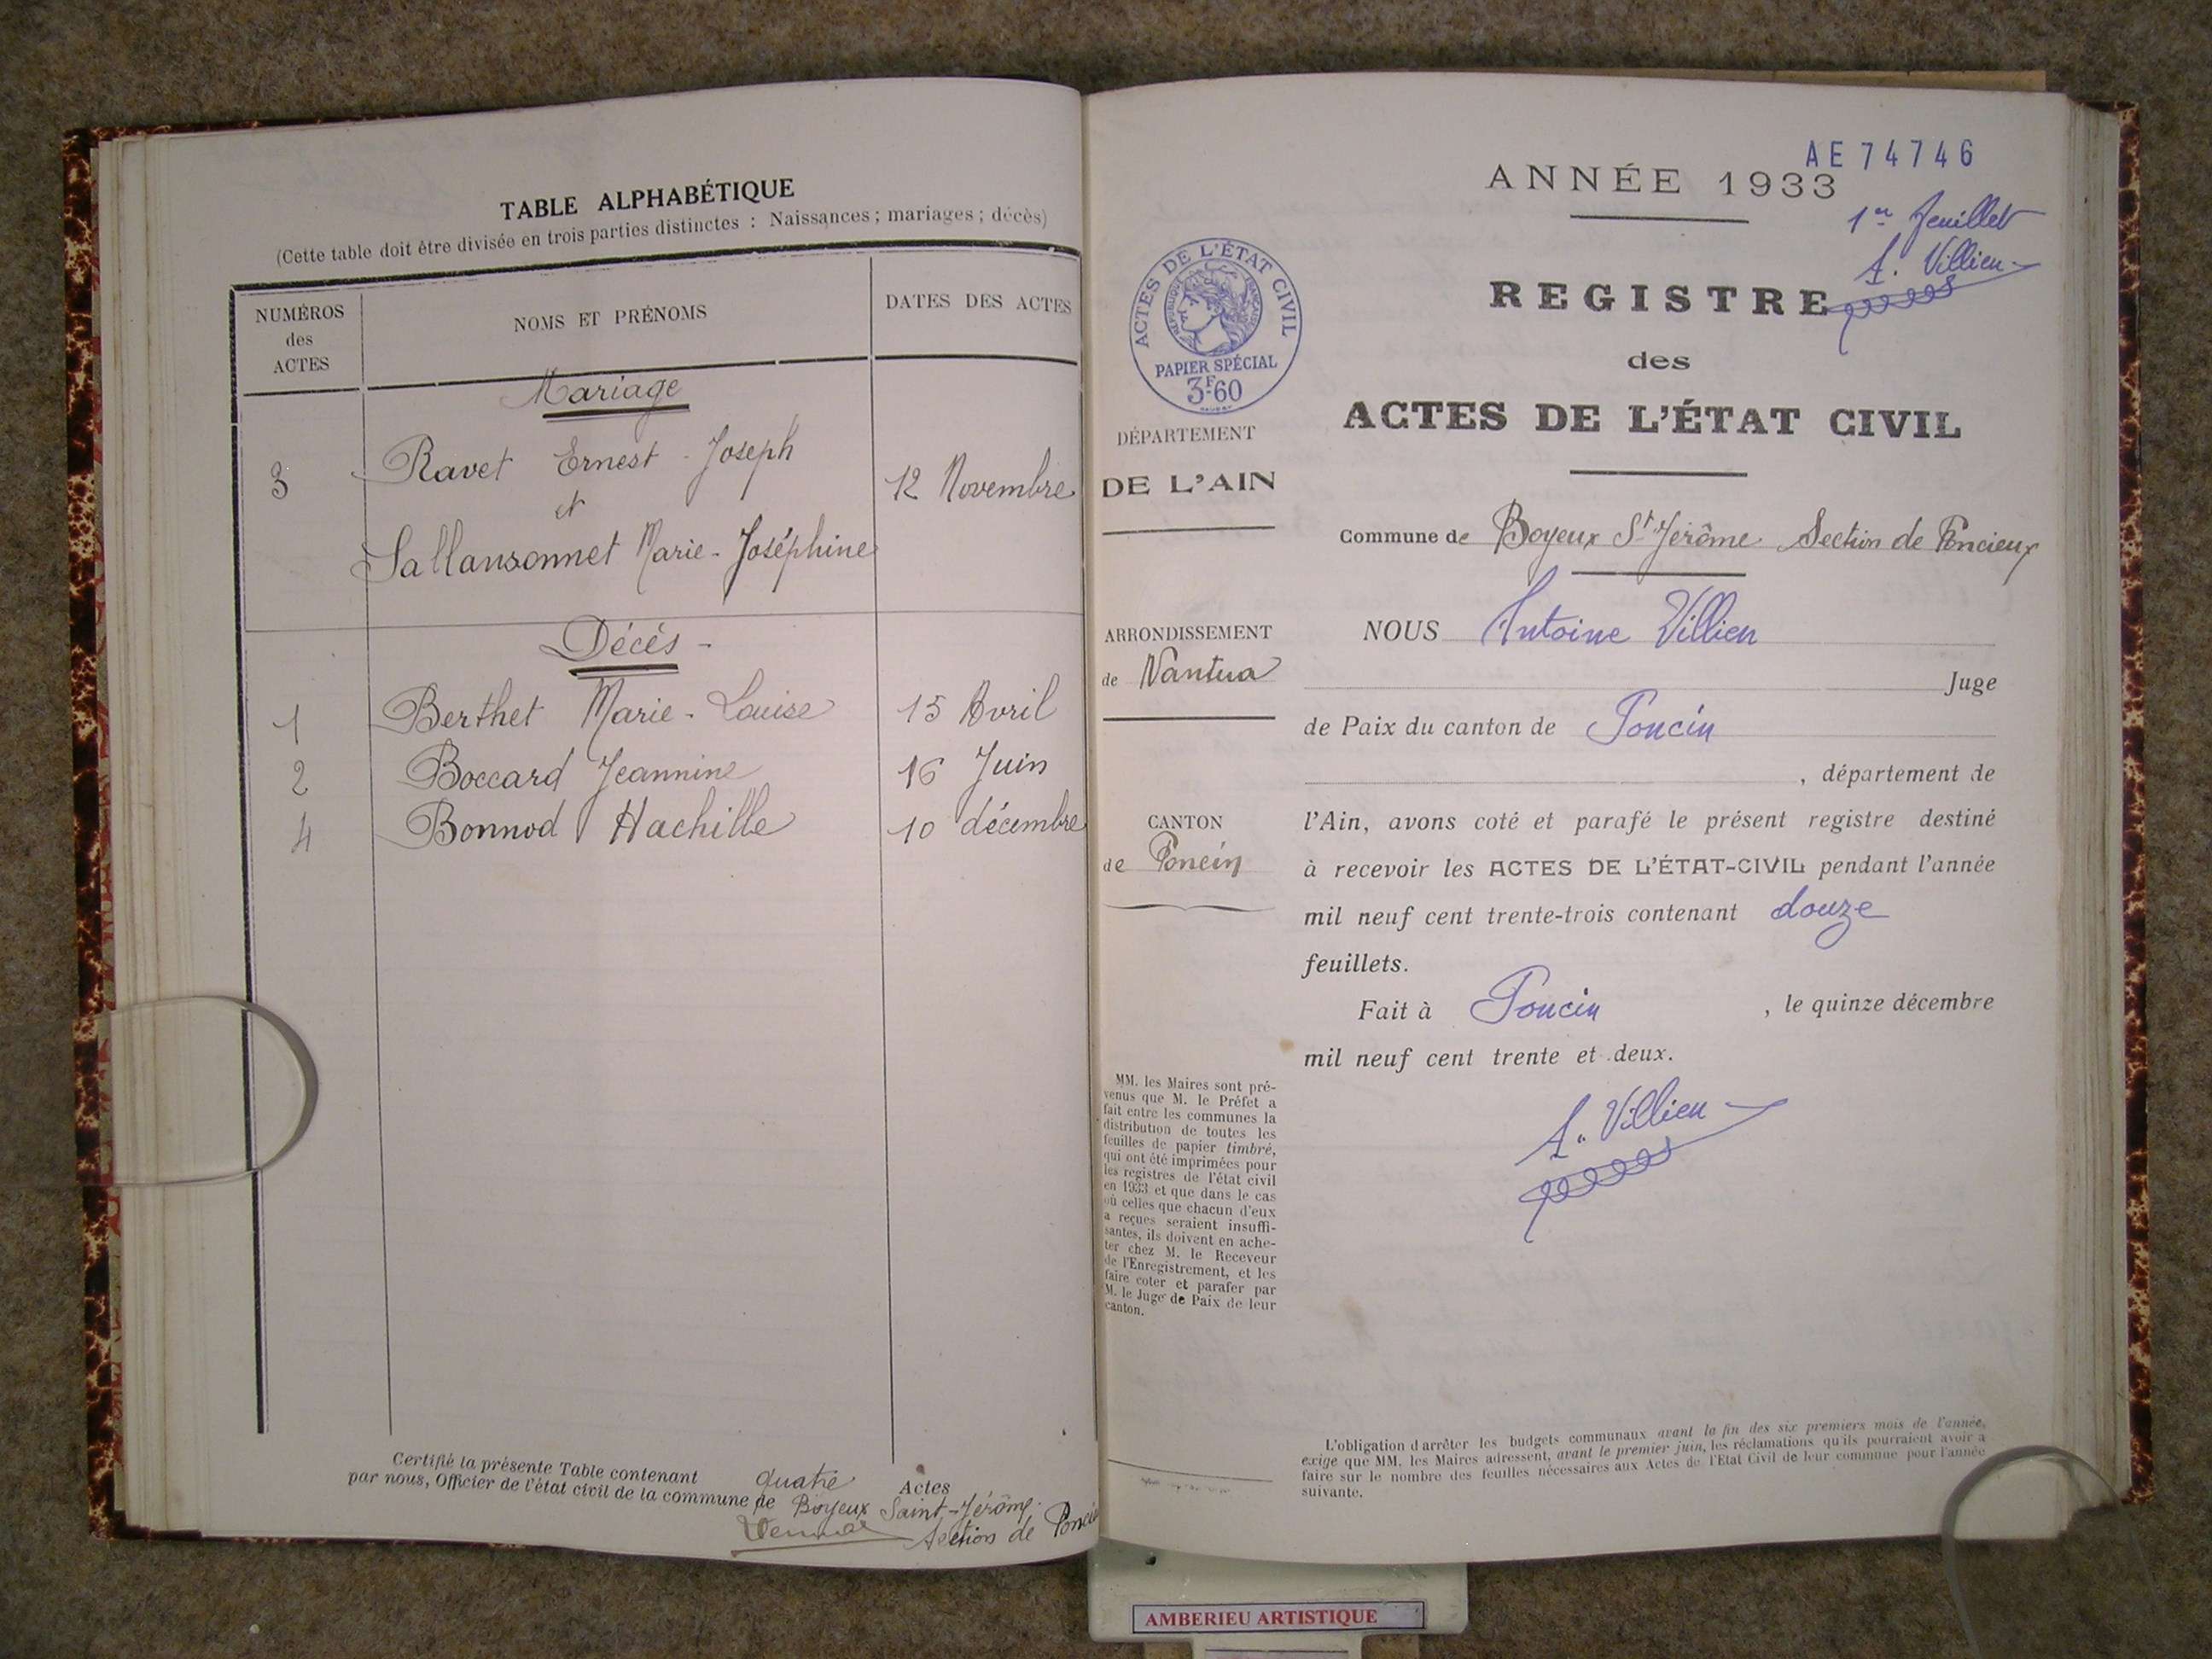 TABLE ALPHABÉTIQUE
(Cette table doit être divisée en trois parties distinctes : Naissances ; mariages ; décès)
NUMÉROS
des
ACTES
NOMS ET PRÉNOMS
DATES DES ACTES
Mariage
3 Ravet Ernest - Joseph
et
12 Novembre
Sallansonnet Marie - Joséphine
Décés -
1 Berthet Marie - Louise 15 Avril
2 Boccard Jeannine 16 Juin
4 Bonnod Hachille 10 décembre
Certifié la présente Table contenant quatre Actes
par nous, Officier de l'état civil de la commune de Boyeux Saint-Jérôme.
Section de
AE 74746
ANNÉE 1933
1er feuillet
A. Villien
ACTES DE L'ÉTAT CIVIL
RÉPUBLIQUE FRANÇAISE
PAPIER SPÉCIAL
3F.60
DÉPARTEMENT
DE L'AIN
ARRONDISSEMENT
de Nantua
CANTON
de Poncin
MM. les Maires sont pré-
venus que M. le Préfet a
fait entre les communes la
distribution de toutes les
feuilles de papier timbré,
qui ont été imprimées pour
les registres de l'état civil
en 1933 et que dans le cas
où celles que chacun d'eux
a reçues seraient insuffi-
santes, ils doivent en ache-
ter chez M. le Receveur
de l'Enregistrement, et les
faire coter et parafer par
M. le Juge de Paix de leur
canton.
REGISTRE
des
ACTES DE L'ÉTAT CIVIL
Commune de Boyeux St Jérôme Section de Poncieux
NOUS Antoine Villien
Juge
de Paix du canton de Poncin
, département de
l'Ain, avons coté et parafé le présent registre destiné
à recevoir les ACTES DE L'ÉTAT-CIVIL pendant l'année
mil neuf cent trente-trois contenant douze
feuillets.
Fait à Poncin , le quinze décembre
mil neuf cent trente et deux.
A. Villien
L'obligation d'arrêter les budgets communaux avant la fin des six premiers mois de l'année,
exige que MM. les Maires adressent, avant le premier juin, les réclamations qu'ils pourraient avoir à
faire sur le nombre des feuilles nécessaires aux Actes de l'Etat Civil de leur commune pour l'année
suivante.
AMBERIEU ARTISTIQUE